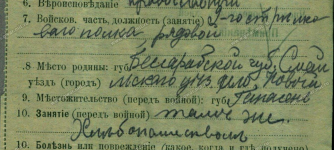 6. Вѣроисповѣданіе православный
7. Войсков. часть, должность (занятіе) 2-го стрѣлко
ваго полка, рядовой
8. Мѣсто родины: губ. Бессарабской губ.
уѣздъ (городъ)
9. Мѣстожительство (передъ войной): губ.
10. Занятіе (передъ войной) то же.
Хлѣбопашествомъ
10. Болѣзнь или поврежденіе (какое, когда и гдѣ получено)